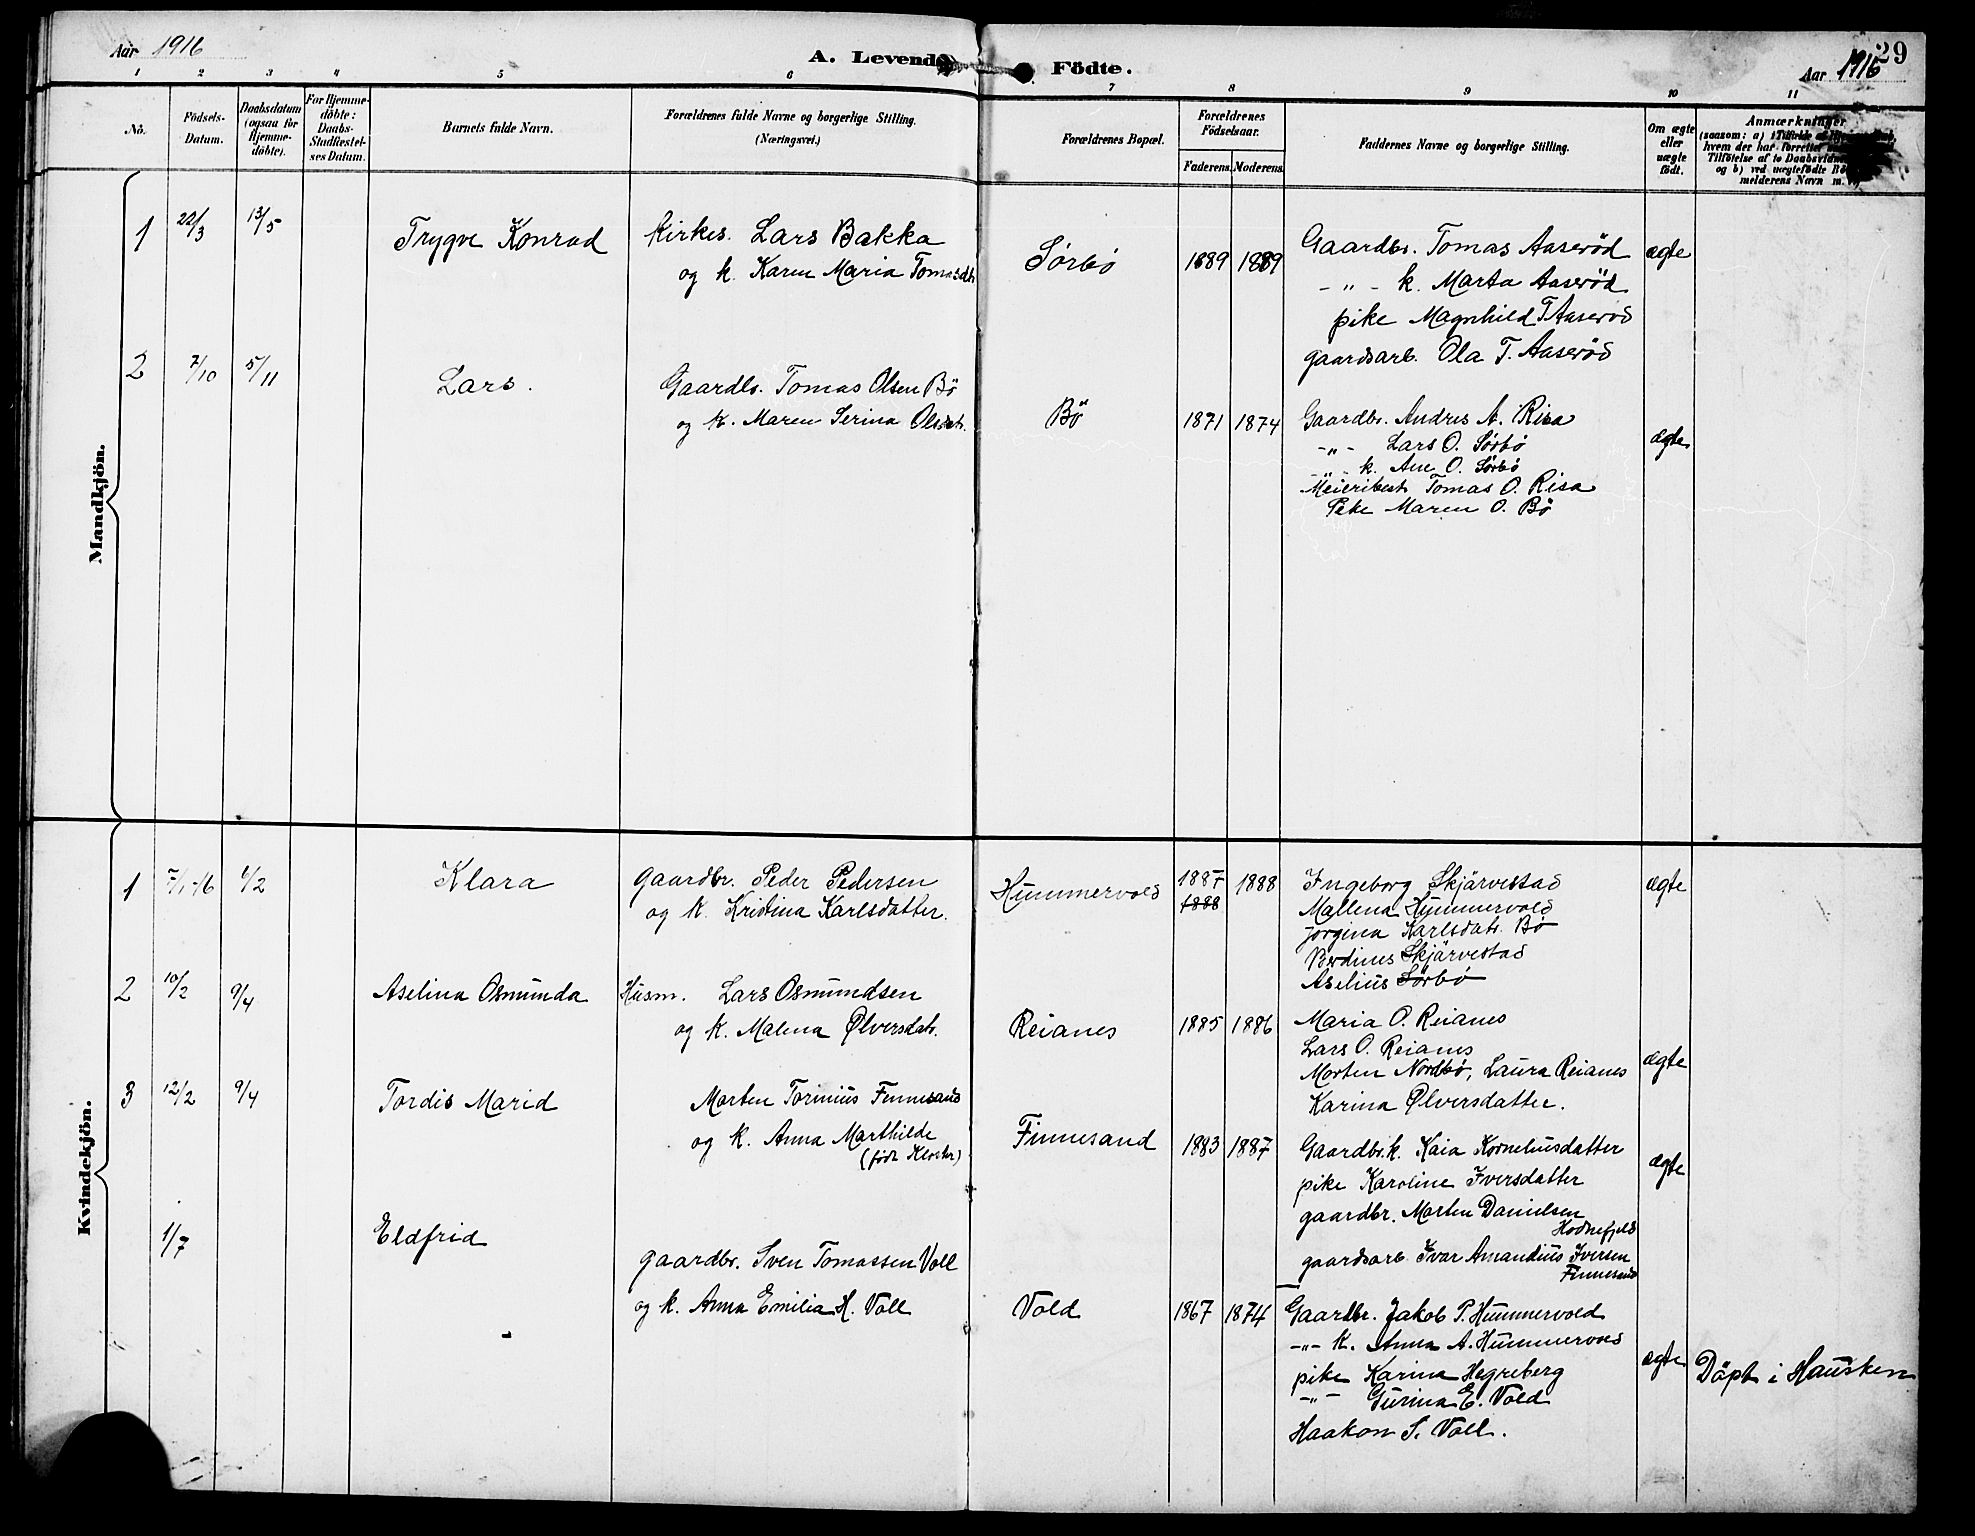 Aar 1916
A. Levende Födte.
29
Aar 1916
1 2 3 4 5 6 7 8 9 10 11
No.
Födsels-
Datum.
Daabsdatum
(ogsaa for
Hjemme-
döbte).
For Hjemme-
döbte:
Daabs-
Stadfæstel-
ses Datum.
Barnets fulde Navn.
Forældrenes fulde Navne og borgerlige Stilling.
(Næringsvei.)
Forældrenes Bopæl.
Forældrenes
Födselsaar.
Faderens. Moderens.
Faddernes Navne og borgerlige Stilling.
Om ægte
eller
uægte
födt.
Anmærkninger
(saasom: a) i Tilfælde af
hvem der har forrettet
Tilföielse af to Daabsvidner
og b) ved uægtefödte
melderens Navn m.
Mandkjön.
1 22/3 13/5 Trygve Konrad
Kirkes. Lars Bakka
og k. Karen Maria Tomasdtr
Sørbø 1889 1889
Gaardbr. Tomas Aaserød
- " - k. Marta Aaserød
pike Magnhild T Aaserød
gaardsarb. Ola T. Aaserød
ægte
2 7/10 5/11 Lars.
Gaardbr. Tomas Olsen Bö
og k. Maren Serina Olsdatr.
Bö 1871 1874
Gaardbr. Andres A. Risa
- " - Lars O. Sørbø
- " - k. Ane O. Sørbø
Meieribest. Tomas O. Risa
Pike Maren O. Bö
ægte
Kvindekjön.
1 7/1-16 6/2 Klara
gaardbr. Peder Pedersen
og k. Kristina Karlsdatter.
Hummervold 1887 1888
1888
Ingeborg Skjärvestad
Mallena Hummervold
Jorgina Karlsdatr. Bø
Berdines Skjärvestad
Aselius Sørbø
ægte
2 10/2 9/4 Aselina Osmunda
Husm. Lars Osmundsen
og k. Malena Ølversdatr.
Reianes 1885 1886
Maria O. Reianes
Lars O. Reianes
Morten Nordbø, Laura Reianes
Karina Ølversdatter.
ægte
3 12/2 9/4 Tordis Marid
Morten Torinius Finnesand
og k. Anna Marthilde
(født Kloster)
Finnesand 1883 1887
Gaardbr.k. Kaia Korneliusdatter
pike Karoline Iversdatter
gaardbr. Morten Danielsen
Hodnefjeld
gaardsarb. Ivar Amandius Iversen
Finnesand
ægte
1/7 Eldfrid
gaardbr. Sven Tomassen Voll
og k. Anna Emilia H. Voll
Vold 1867 1874
Gaardbr. Jakob P. Hummervold
- " - k. Anna A. Hummervold
pike Karina Hegreberg
- " - Gurina E. Vold
Haakon S. Voll.
ægte
Döpt i Hausken